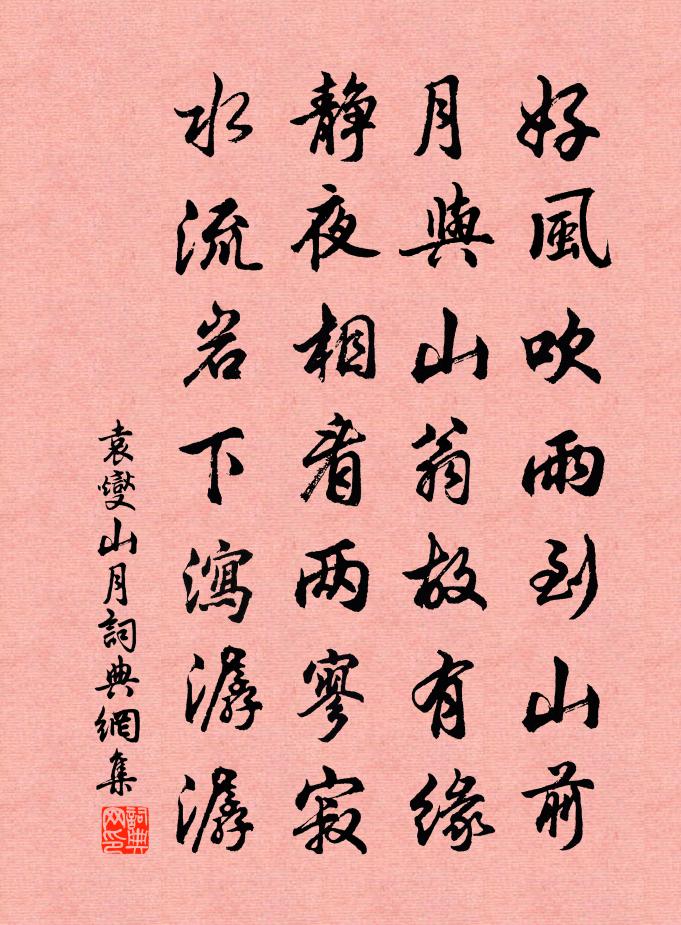 好風吹雨到山前
月與山翁故有緣
静夜相看两寥寂
水流岩下瀉潺潺
袁燮山月詞典網集
詞典网印